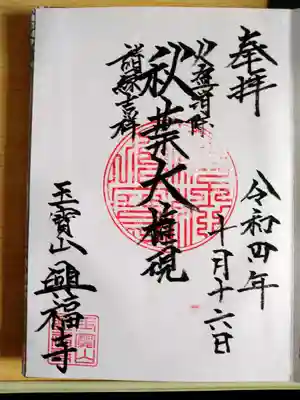 奉拝
令和四年
十月十六日
火盗消除
秋葉大権現
諸縁吉祥
玉寶山興福寺